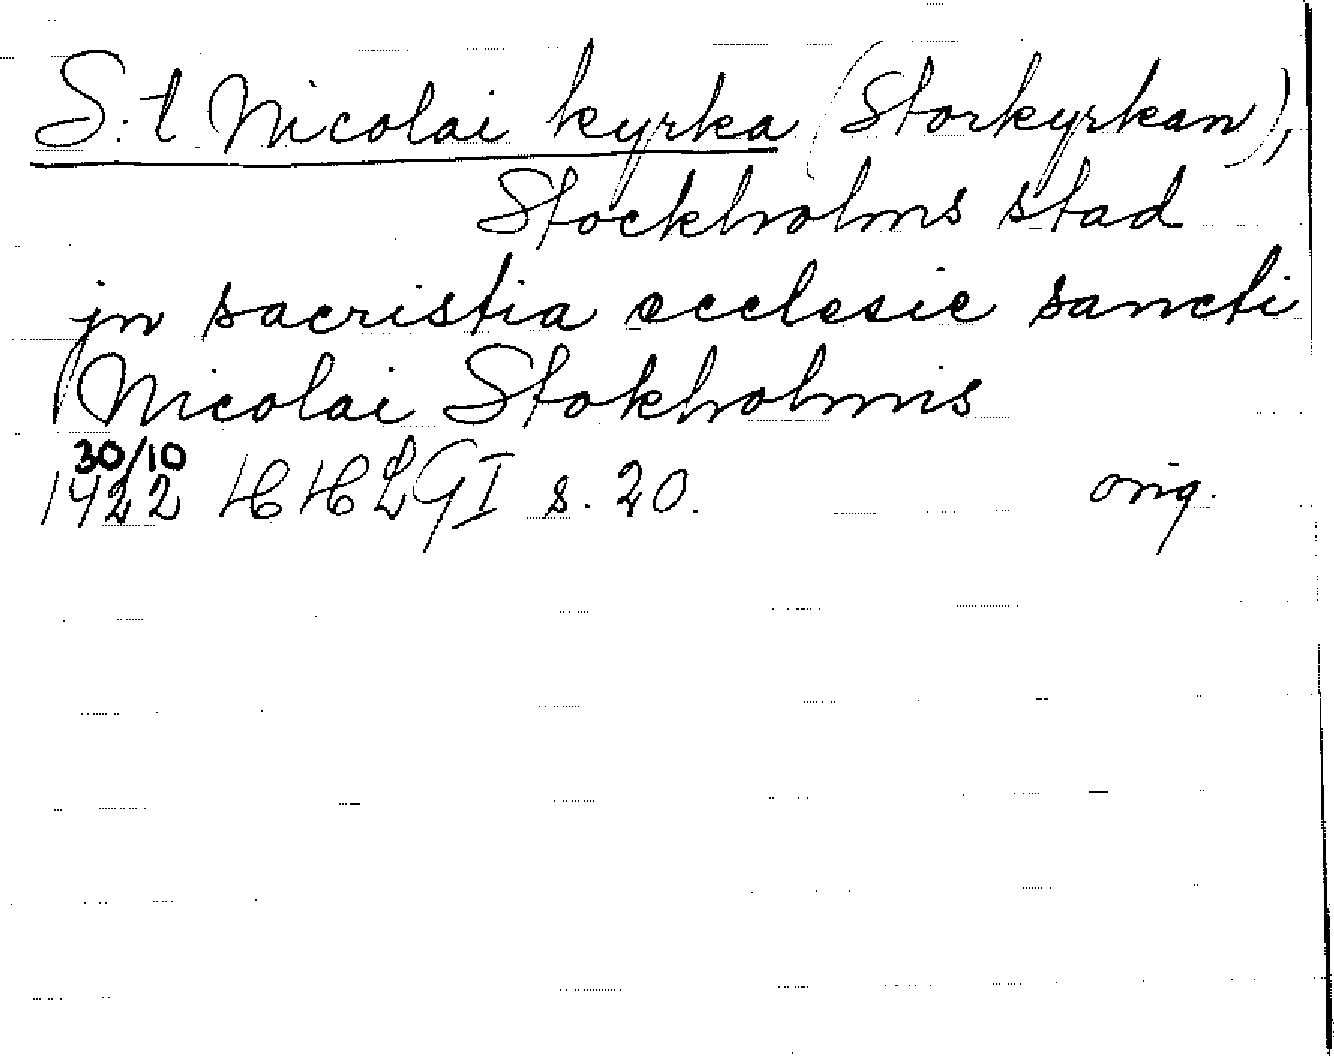 S:t Nicolai kyrka (Storkyrkan),
Stockholms stad
jn sacristia ecclesie sancti
Nicolai Stokholmis
30/10
1422 HHLGI s. 20. orig.